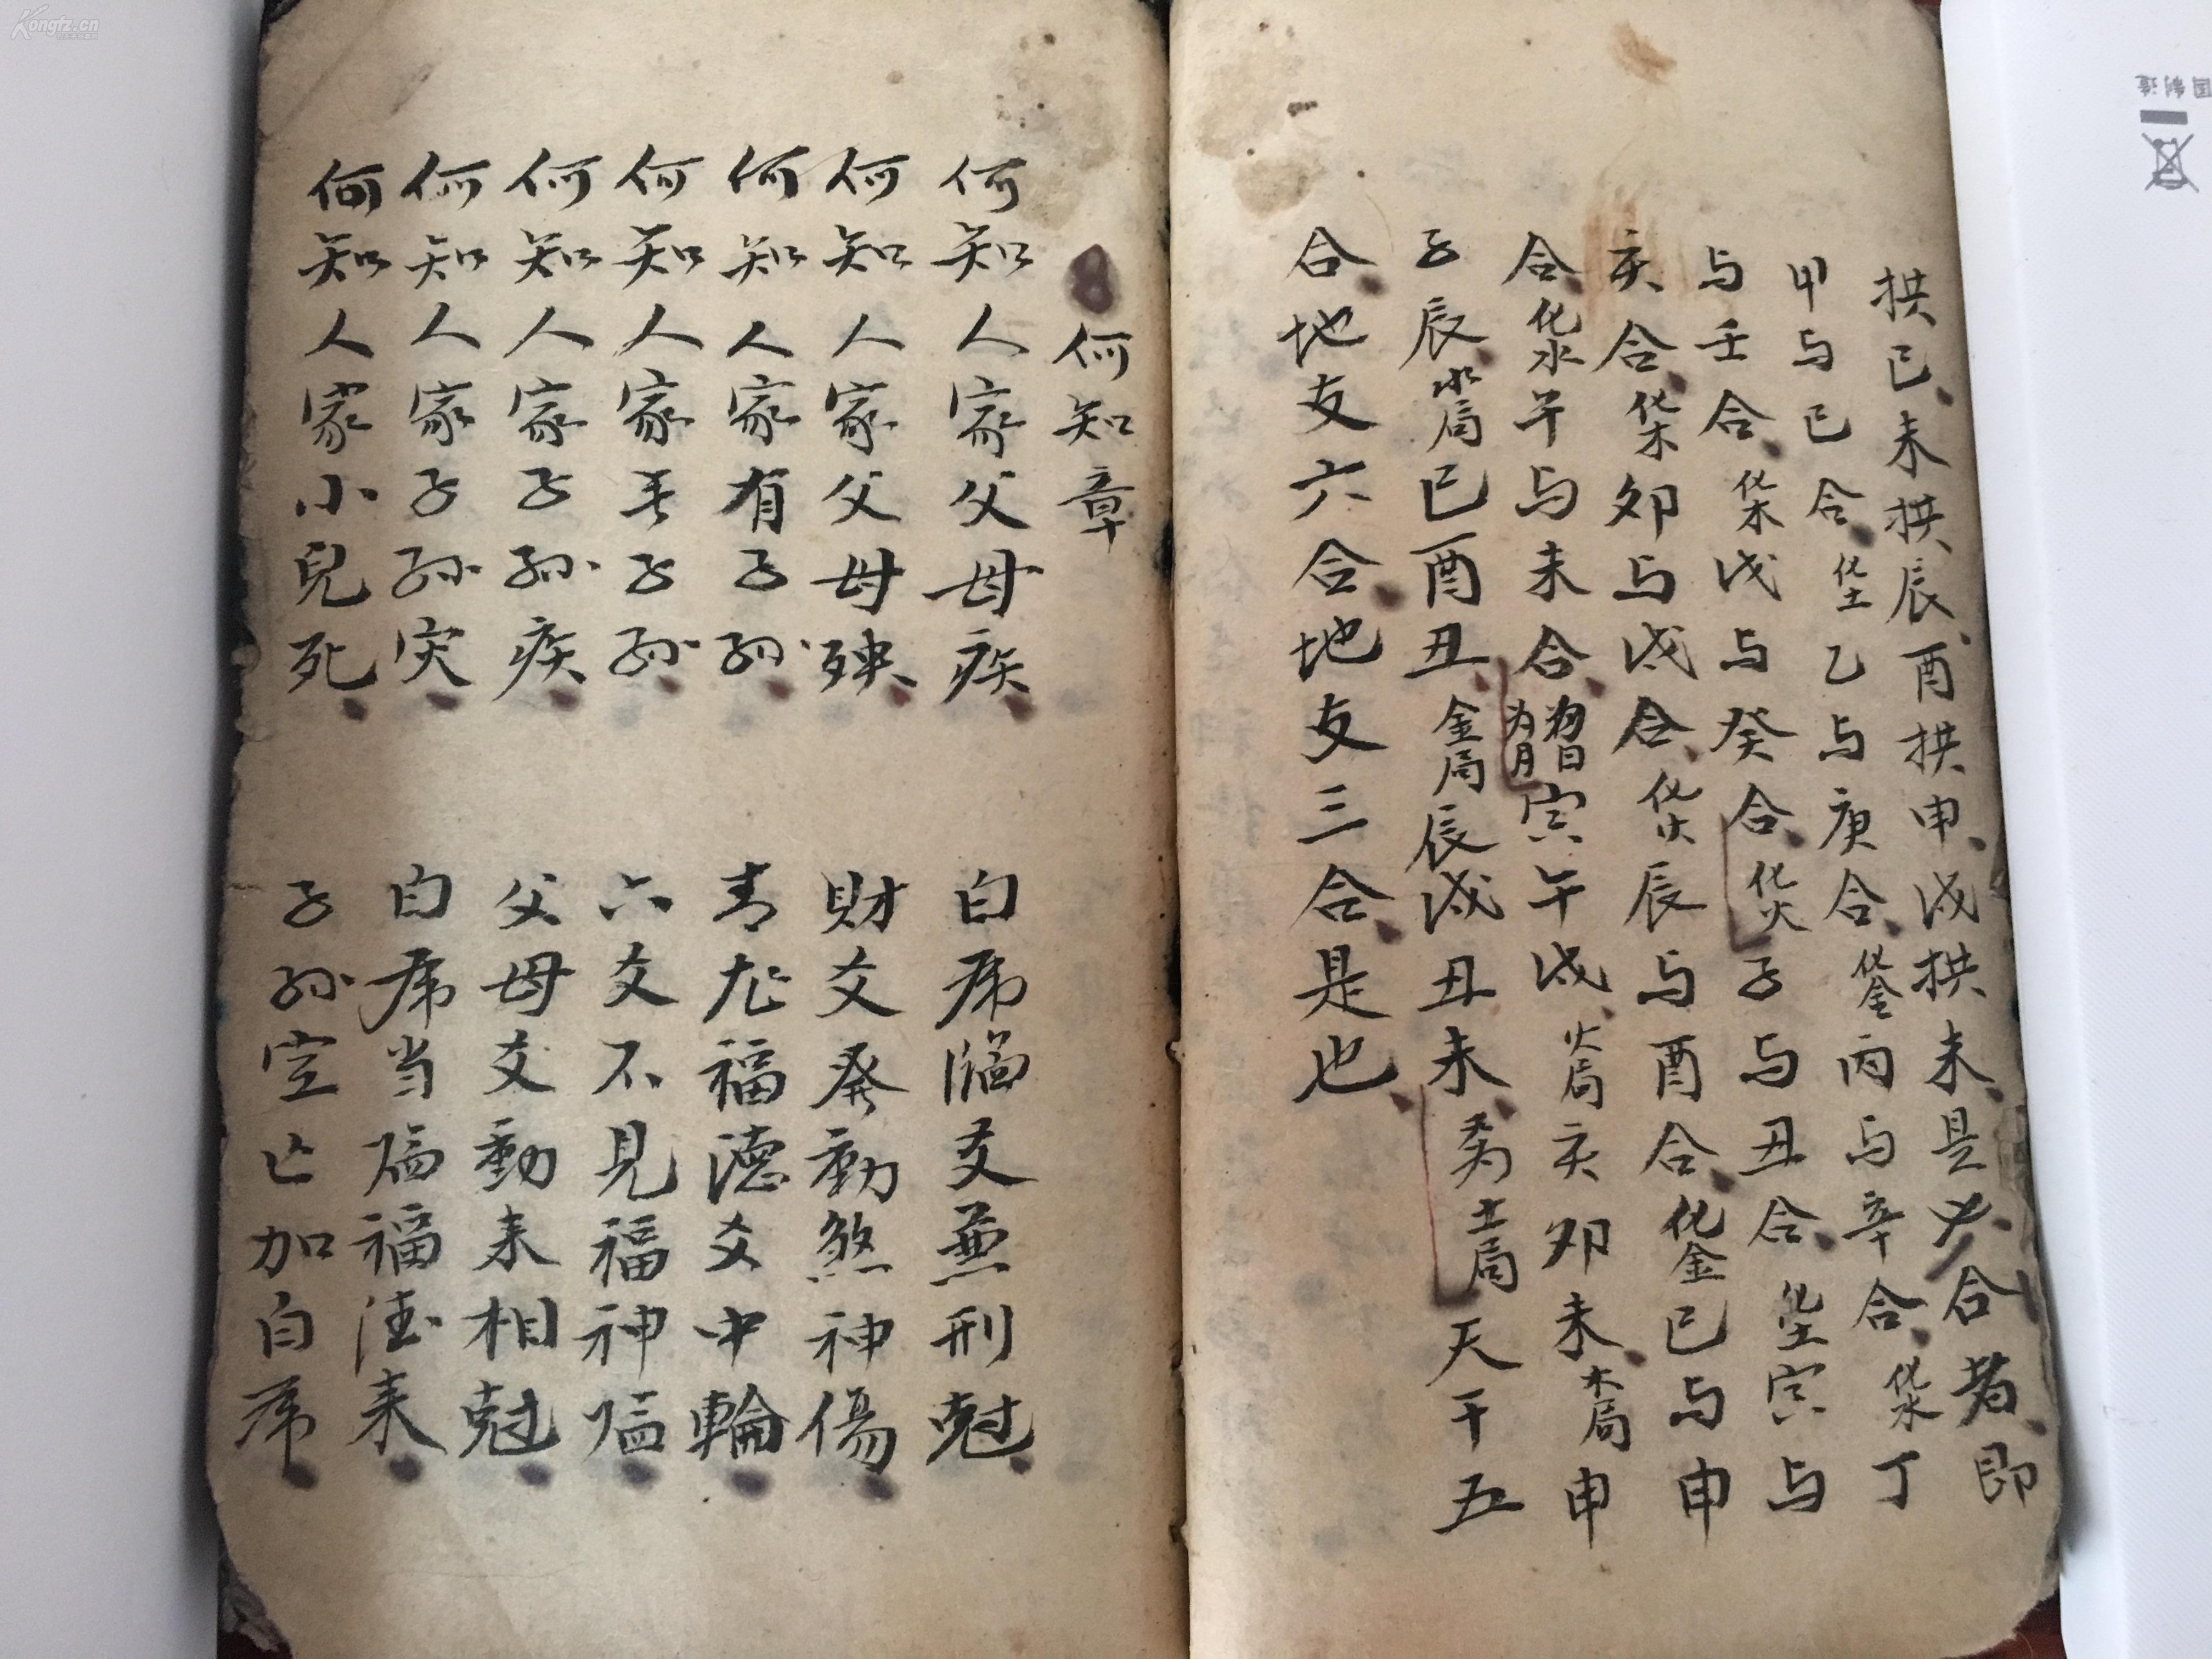 拱巳未拱辰酉拱申戌拱未是合者即
甲与己合化土乙与庚合化金丙与辛合化水丁
与壬合化木戊与癸合化火子与丑合化土寅与
亥合化木卯与戌合化火辰与酉合化金巳与申
合化水午与未合为日为月寅午戌火局亥卯未木局申
子辰水局巳酉丑金局辰戌丑未为土局天干五
合地支六合地支三合是也
何知章
何知人家父母疾 白虎臨爻兼刑尅
何知人家父母殃 財爻發動煞神傷
何知人家有子孙 青龙福德爻中輪
何知人家无子孙 六爻不見福神临
何知人家子孙疾 父母爻動来相尅
何知人家子孙灾 白虎当临福德来
何知人家小兒死 子孙空亡加白虎
Kongfz.cn
国制造